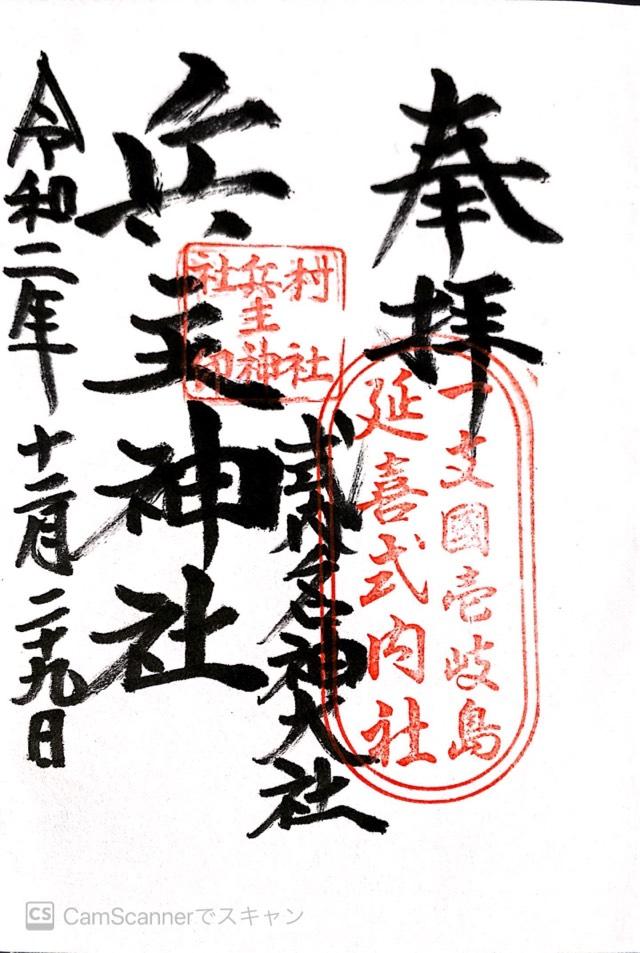 奉拝
一支國壱岐島
延喜式内社
式内名神大社
村社
兵主神
社印
兵主神社
令和二年十二月二十九日
CS CamScannerでスキャン